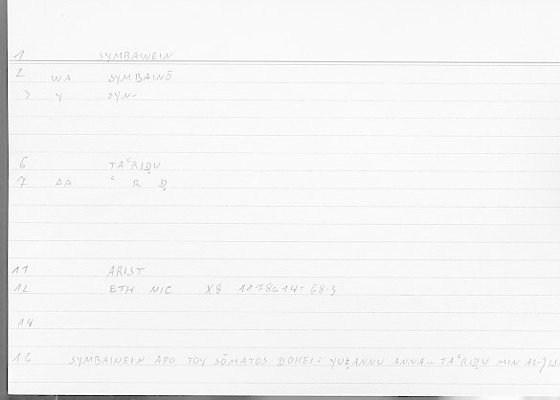 1 SYMBAINEIN
2 WA SYMBAINŌ
3 Y SYN-
6 TAʿRIḌU
7 AA ʿ R Ḍ
11 ARIST
12 ETH NIC X8 1178a14= 68.3
14
16 SYMBAINEIN APO TOY SŌMATOS DOKEI= YUẒANNU ANNA... TAʿRIḌU MIN AL-